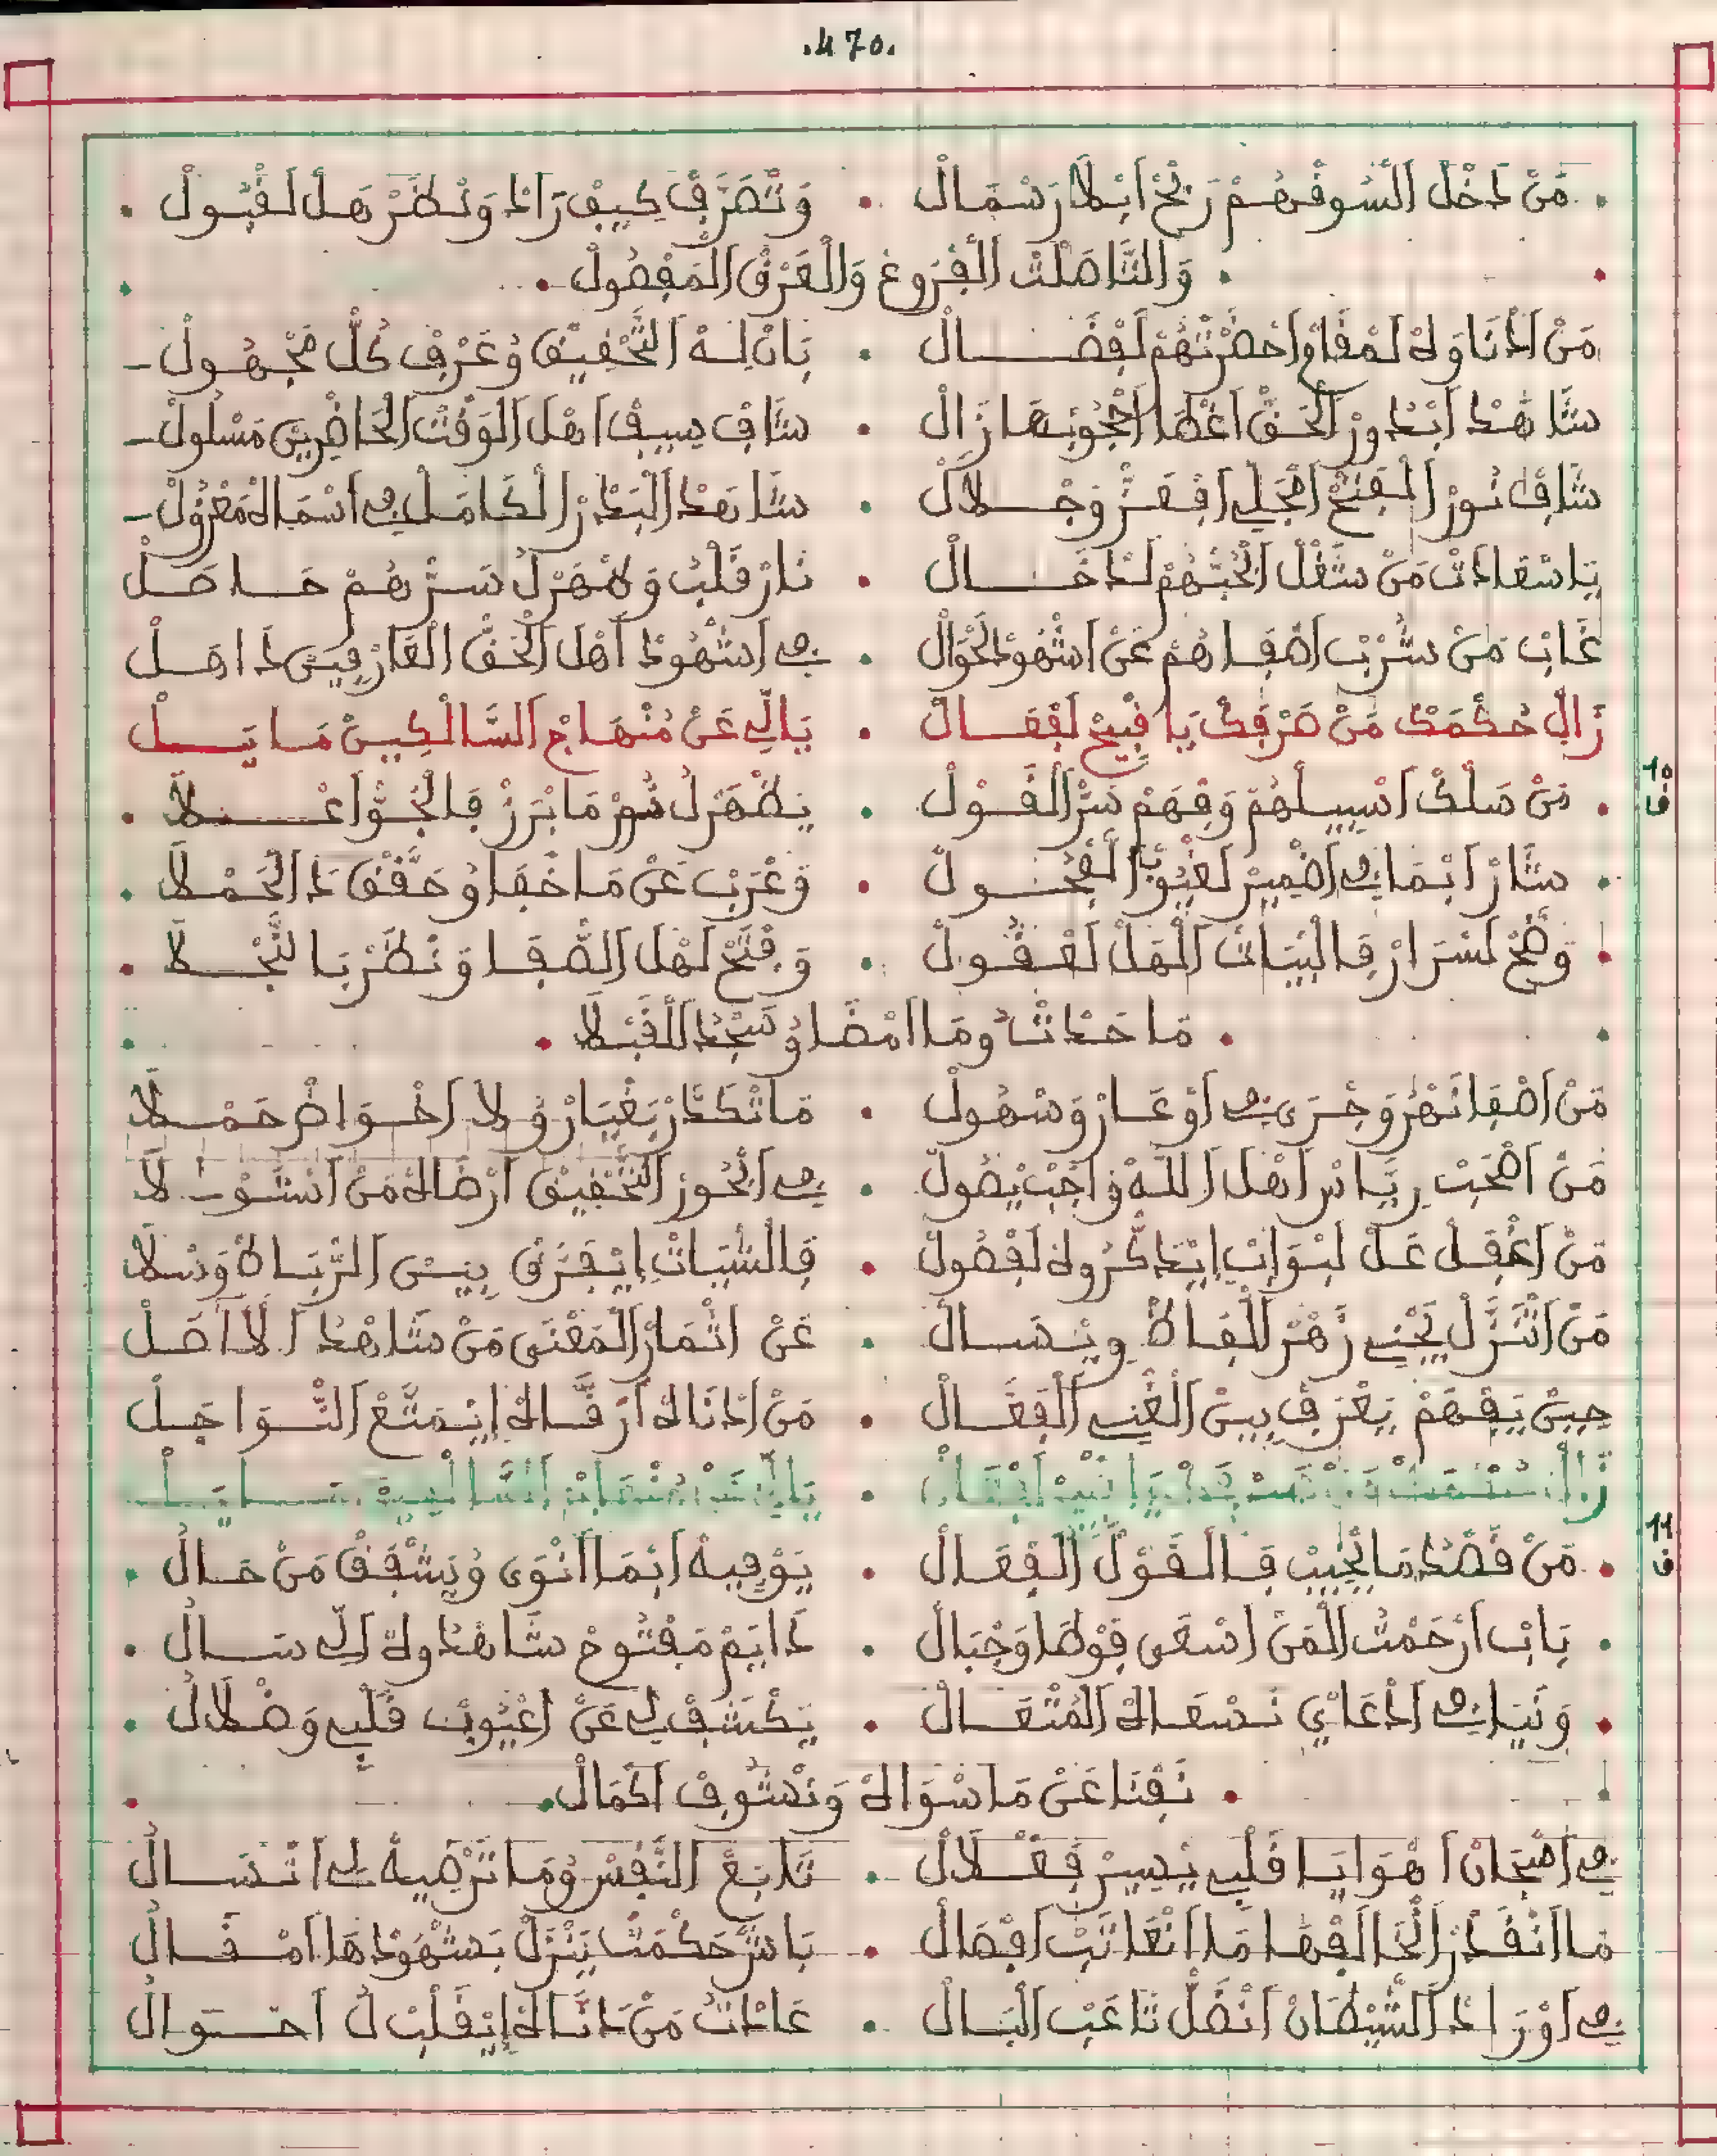 .470.
مَنْ دَخْلْ اَلسُّوقْهُمْ رَبْحْ اَبْلَا رَسْمَالْ . وَتْصَرَّفْ كِيفْ رَادْ وَنْظَرْ هَلْ لَقْبُولْ
وَالتَّاصْلَتْ اَلْفْرُوعْ وَالْعَرْقْ اَلْمَفْصُولْ
مَنْ اَدْنَاوَهْ لَمْقَامْ اَحْضَرْتْهُمْ لَفْضَالْ . بَانْ لِهْ اَلتَّحْقِيقْ وُعْرَفْ كُلْ مَجْهُولْ
شَاهْدْ اَبْدُورْ اَلْحَقْ اغْطَا اَحْجُوبْهَا زَالْ . شَافْ سِيفْ اهْلْ اَلْوَقْتْ اَلْحَاضْرِينْ مَسْلُولْ
شَافْ نُورْ اَلْفَتْحْ اَنْجْلِي اَفْعَزْ وَجْلَالْ . شَاهَدْ اَلْبَدْرْ اَلْكَامَلْ فِي اَسْمَاهْ مَعْزُولْ
يَا سْعَادَتْ مَنْ شْغَلْ اَلْحُبّْهُمْ لَدْخَالْ . نَارْ قَلْبُ وَظْهَرْ لُ سَرّْهُمْ حَاصَلْ
غَابْ مَنْ شُرْبْ اَصْفَاهُمْ عَنْ اَشْهُودْ لَحْوَالْ . فِي اَشْهُودْ اَهْلْ اَلْحَقْ اَلْعَارْفِينْ دَاهَلْ
زَالْ حُكْمَكْ مَنْ صَرْفَكْ يَا قْبِيحْ لَفْعَالْ . يَالِّي عَنْ مُنْهَاجْ اَلسَّالْكِينْ مَايَلْ
10
ف
مَنْ سَلْكْ اَسْبِيلْهُمْ وَفْهَمْ سَرّْ اَلْقَوْلْ . يَظْهَرْ لُ نُورْ مَا بْرَزْ فَالْجَوّْ اَعْلَا
سَتَّارْ اَنْمَا فِي اَضْمِيرْ لَغْيُوبْ اَلْفْحُولْ . وَعْرَبْ عَنْ مَا خْفَا وُحَقَّقْ دَ اَلْحَمْلَا
وَضَّحْ لَسْرَارْ فَالْبْيَاتْ اَلْهَلْ لَعْقُولْ . وَفْتَحْ لَهْلْ اَلصّْفَا وَنْظَرْ بَالتّْجْلَا
مَا حَدْثَتْ وُمَا اَمْضَا وُسْجَدْ اَلْقَبْلَا
مَنْ اَصْفَا نَهْرُ وَجْرَى فِي اَوْعَارْ وَسْهُولْ . مَا تْكَدَّرْ بَغْيَارْ وَلَا اَخْوَاضْ حَمْلَا
مَنْ اَصْحَبْ رِيَّاسْ اَهْلْ اَللَّهْ وَاجَبْ يْصُولْ . فِي اَبْحُورْ اَلتَّحْقِيقْ اَرْضَاهْ مَنْ اَنْشَوْلَا
مَنْ اَعْقَلْ عَلْ لَبْوَابْ اِيْتَدَكّْرُولَهْ لَفْصُولْ . فَالشّْبَاتْ اِيْفَرَّقْ بِينْ اَلرّْبَاطْ وَسْلَا
مَنْ اَنْتَزَّلْ يَجْنِي زَهْرْ اَلْفَاظْ وِيْسَالْ . عَنْ اَثْمَارْ اَلْمَعْنَى مَنْ شَاهْدْ اَلَّاصَلْ
حِينْ يَفْهَمْ يَعْرَفْ بِينْ اَلْغْنِي اَلْفَعَّالْ . مَنْ اَدْنَاهْ اَرْقَاهْ اِيْمَتَّعْ اَلنّْوَاجَلْ
زَالْ حُكْمَكْ مَنْ صَرْفَكْ يَا قْبِيحْ لَفْعَالْ . يَالِّي عَنْ مُنْهَاجْ اَلسَّالْكِينْ مَايَلْ
11
ف
مَنْ قَصْدُ مَا يْخِيبْ فَالْقَوْلْ اَلْفْعَالْ . يَوْفِيهْ اَنْمَا اَنْوَى وُيَشْفَقْ مَنْ حَالُ
بَابْ اَرْحَمْتْ اَلْمَنْ اَسْعَى فَوْطَا وَجْبَالْ . دَايَمْ مَفْتُوحْ شَاهْدُوهْ اَلِّي سَالُ
وَنَيَا فِي اَدْعَايْ نَسْعَاهْ اَلْمُتْعَالْ . يَكْشَفْ لِي عَنْ اَعْيُوبْ قَلْبِي وَضْلَالُ
نَفْنَا عَنْ مَا سْوَاهْ وَنْشُوفْ اَكْمَالُ
فِي اَصْجَانْ اَهْوَايَا قَلْبِي يْسِيرْ فَعْلَالْ . تَابَعْ اَلنَّفْسْ وُمَا تَرْضِيهْ لِي اَنْسَالُ
مَا اَنْقَدَرْ اَنْخَالَفْهَا مَا اَنْعَاتَبْ اَفْصَالْ . بَاشْ حَكْمَتْ يَنْزَلْ بَشْهُودْهَا اَمْقَالُ
فِي اَوْرَادْ اَلشَّيْطَانْ اَنْضَلْ تَاعَبْ اَلْبَالْ . عَادْتُ مَنْ دَانَاهْ اِيْقَلْبْ لُ اَحْوَالُ